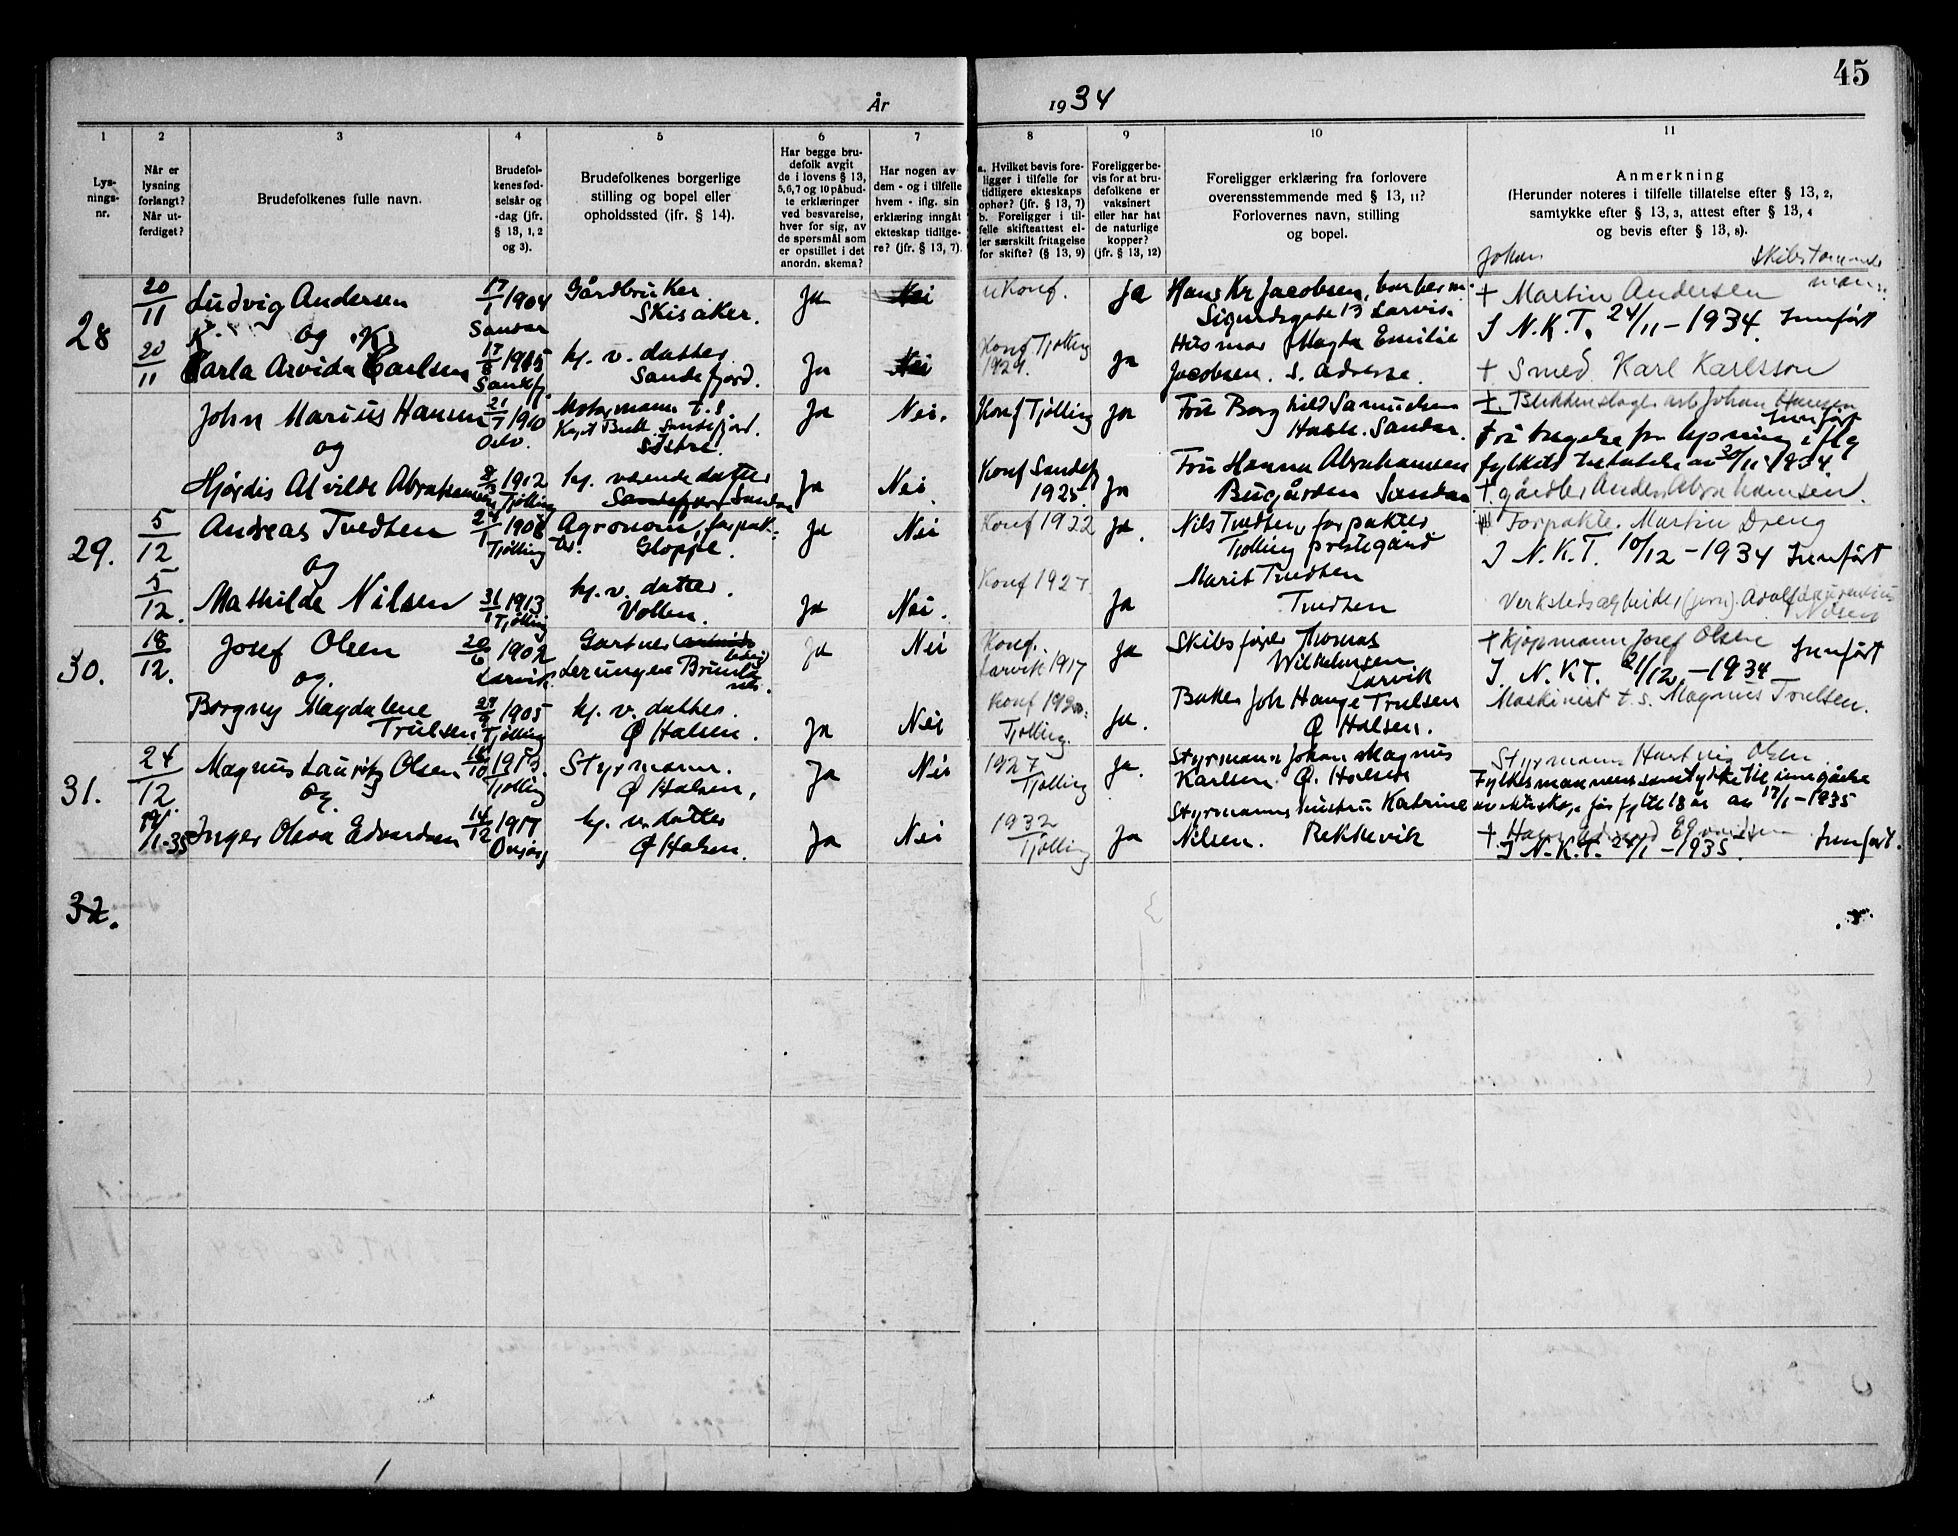 45
År 1934
1 2 3 4 5 6 7 8 9 10 11
Lysnings-
nr.
Når er
lysning
forlangt?
Når ut-
ferdiget?
Brudefolkenes fulle navn.
Brudefol-
kenes fød-
selsår og
-dag (jfr.
§ 13, 1, 2
og 3).
Brudefolkenes borgerlige
stilling og bopel eller
opholdssted (jfr. § 14).
Har begge bru-
defolk avgit
de i lovens § 13,
5,6,7 og 10 påbud-
te erklæringer
ved besvarelse,
hver for sig, av
de spørsmål som
er opstillet i det
anordn. skema?
Har nogen av
dem - og i tilfelle
hvem - iflg. sin
erklæring inngåt
ekteskap tidlige-
re? (jfr. § 13, 7).
a. Hvilket bevis fore-
ligger i tilfelle for
tidligere ekteskaps
ophør? (jfr. § 13, 7)
b. Foreligger i til-
felle skifteattest el-
ler særskilt fritagelse
for skifte? (§ 13, 9)
Foreligger be-
vis for at bru-
defolkene er
vaksinert
eller har hat
de naturlige
kopper?
(jfr. § 13, 12)
Foreligger erklæring fra forlovere
overensstemmende med § 13, 11?
Forlovernes navn, stilling
og bopel.
Anmerkning
(Herunder noteres i tilfelle tillatelse efter § 13, 2,
samtykke efter § 13, 3, attest efter § 13, 4
og bevis efter § 13, 8).
28
20/11 Ludvig Andersen 17/1 1904 Sandar Gårdbruker Skisaker. Ja Nei ukonf. Ja Hans Kr Jacobsen, Sigurdsgate 13 Larvik. Johan + Martin Andersen
og I N.K.T. 24/11 - 1934. Innført
20/11 Carla Arvida Carlsen 1905 Sandefj. hj. v. datter Sandefjord. Ja Nei Konf Tjølling 1929. Ja Husmor Magda Emilie Jacobsen. S. adresse. + Smed Karl Karlsson
John Marius Hansen 1910 Oslo. Motormann t. s. Sandefjord. Ja Nei. Konf Tjølling Ja Fru Borghild Samuelsen Sandar. Johan Hansen Innført
og fylkets 30/11 1934.
Hjørdis Alvilde Abrahamsen 1912 Tjølling hj. værende datter Sandefjord Sandar Ja Nei. Konf Sandefj 1925. Ja Fru Hanna Abrahamsen Bugården Sandar + gårdbr Anders Abrahamsen.
29.
5/12 Andreas Tvedten 24/1 1908 Tjølling Agronom, forpakter. Gloppe. Ja Nei Konf 1922 Ja. Nils Tvedten, forpakter Tjølling prestegård Forpakte. Martin Dreng
og I N.K.T. 10/12 - 1934 Innført
5/12. Mathilde Nilsen 31/1 1913 Tjølling hj. v. datter. Vollen. Ja Nei. Konf 1927 Ja Marit Tvedten Tvedten Verkstedsarbeider (jern). Adolf Laurentius Nilsen
30.
18/12. Josef Olsen 20/6 1902 Larvik. Gartner Brunla Ja Nei Konf. Larvik 1917 Ja Skibsfører Thomas Wilhelmsen Larvik + kjøpmann Josef Olsen
og. I. N.K.T. 21/12 - 1934 Innført
Borgny Magdalene Trulsen 1905 Tjølling hj. v. datter. Ø Halsen. Ja Nei Konf 1920. Tjølling. Ja. Baker Joh Hauge Trulsen Ø Halsen. Maskinist t. s. Magnus Trulsen.
31.
24/12 Magnus Lauritz Olsen 1913. Tjølling Styrmann. Ø Halsen, Ja Nei 1927 Tjølling Ja. Styrmann Johan Magnus Karlsen Ø. Halsen Styrmann Hartvig Olsen.
og. Fylkesmannens samtykke til inngåelse av ekteskap før fylte 18 år av 17/1 - 1935
/1-35 Inger Olava Edvardsen 14/12 1917 hj. v. datter Ø Halsen. Ja Nei 1932 Tjølling Ja Styrmanns hustru Katrine Nilsen. Rekkevik + Hans
I N.K.T. 24/1 - 1935. Innført.
32.